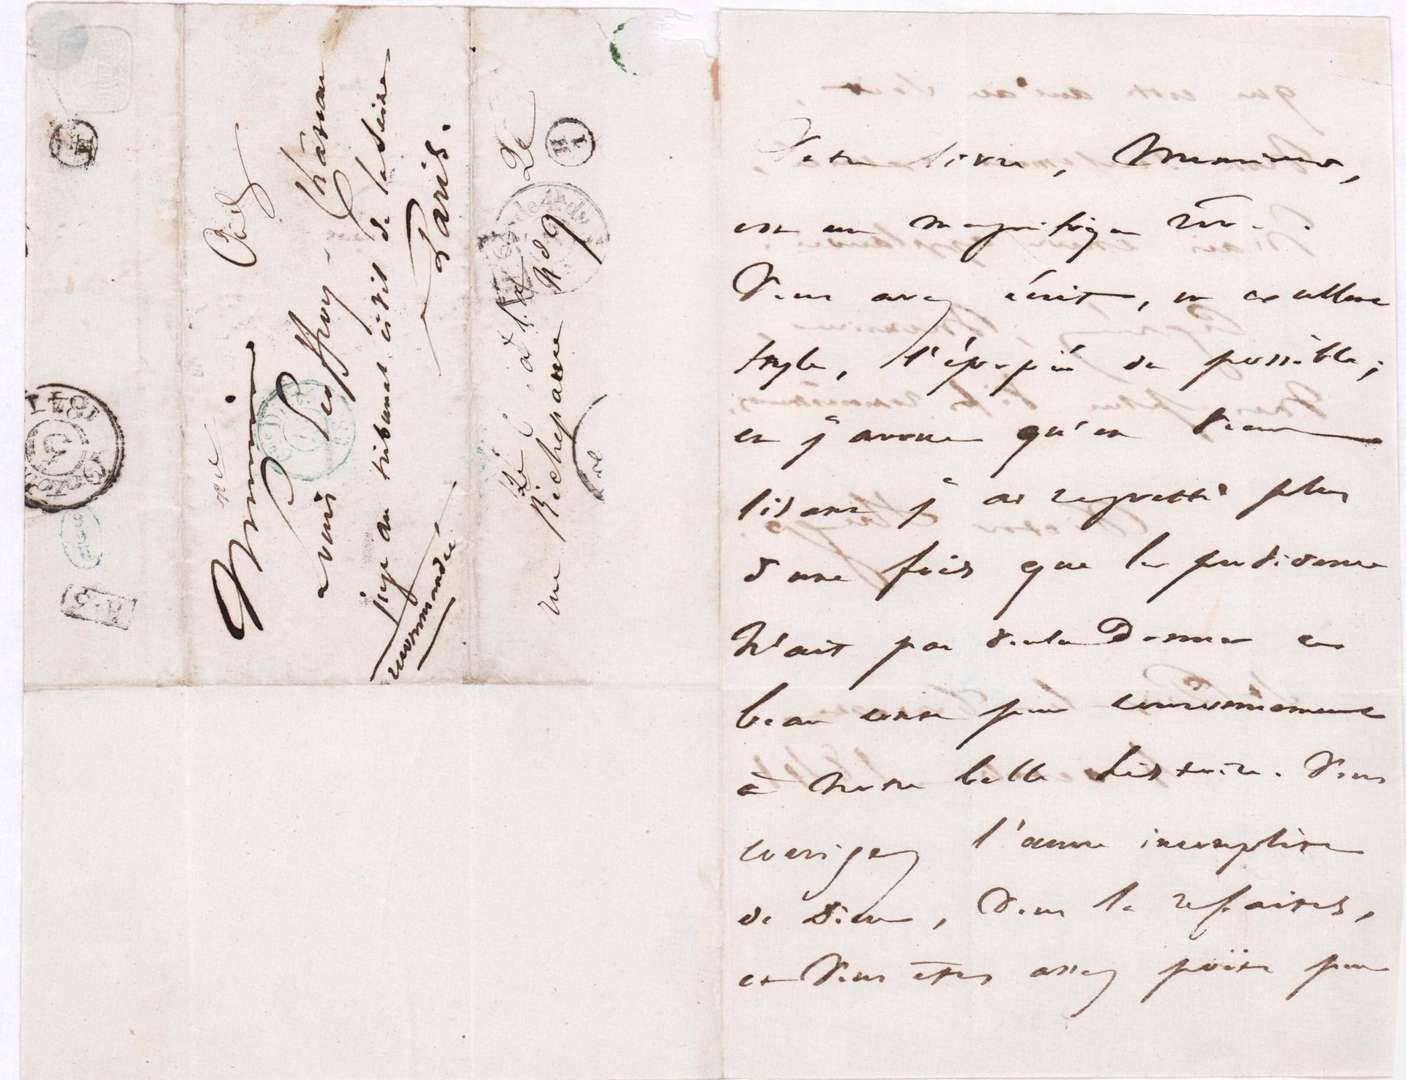 Monsieur
Louis Geoffroy-Château
juge au tribunal civil de la Seine
Paris.
recommandée
rue Richepanse
nº 9
1841
Votre livre, Monsieur,
est un magnifique rêve.
Vous avez écrit, en excellent
style, l'épopée du possible;
et j'avoue qu'en vous
lisant j'ai regretté plus
d'une fois que la providence
n'ait pas voulu donner ce
beau corps pour couronnement
à notre belle histoire. Vous
corrigez l'œuvre incomplète
de Dieu, vous la refaites,
et vous êtes assez poëte pour